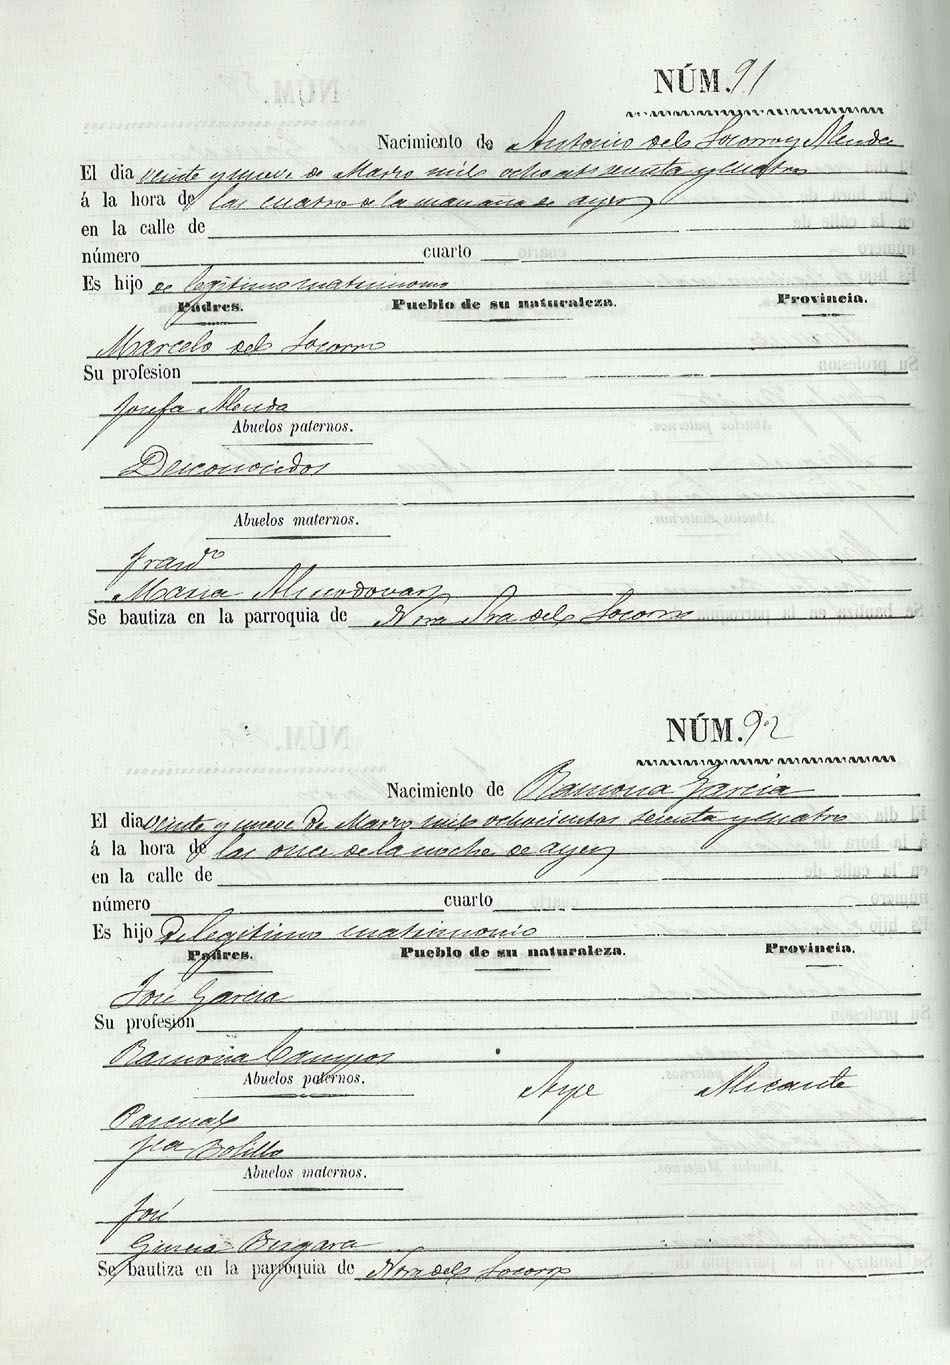 NÚM. 91
Nacimiento de Antonio del Socorro y Alenda
El dia veinte y nueve de Marzo mil ochocts sesenta y cuatro
á la hora de las cuatro de la mañana de ayer
en la calle de
número cuarto
Es hijo de legitimo matrimonio
Padres. Pueblo de su naturaleza. Provincia.
Marcelo del Socorro
Su profesion
Josefa Alenda
Abuelos paternos.
Desconocidos
Abuelos maternos.
Franco
Maria Almodovar
Se bautiza en la parroquia de Ntra Sra del Socorro
NÚM. 92
Nacimiento de Ramona Garcia
El dia veinte y nueve de Marzo mil ochocientos sesenta y cuatro
á la hora de las once de la noche de ayer
en la calle de
número cuarto
Es hijo De legitimo matrimonio
Padres. Pueblo de su naturaleza. Provincia.
José Garcia
Su profesion
Ramona Campos
Abuelos paternos. Aspe Alicante
Pascual
Fca Bolillo
Abuelos maternos.
José
Ginesa Bergara
Se bautiza en la parroquia de Ntra del Socorro